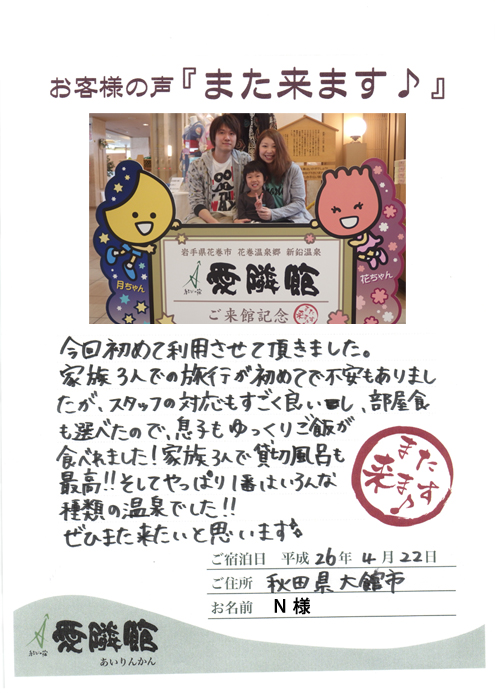 お客様の声『また来ます♪』
岩手県花巻市 花巻温泉郷 新鉛温泉
愛隣館
ご来館記念
月ちゃん
花ちゃん
今回初めて利用させて頂きました。
家族3人での旅行が初めてで不安もありまし
たが、スタッフの対応もすごく良いし、部屋食
も選べたので、息子もゆっくりご飯が
食べれました!家族3人で貸切風呂も
最高!!そしてやっぱり1番はいろんな
種類の温泉でした!!
ぜひまた来たいと思います。
また
来ます♪
ご宿泊日 平成26年4月22日
ご住所 秋田県大館市
お名前 N様
愛隣館
あいりんかん